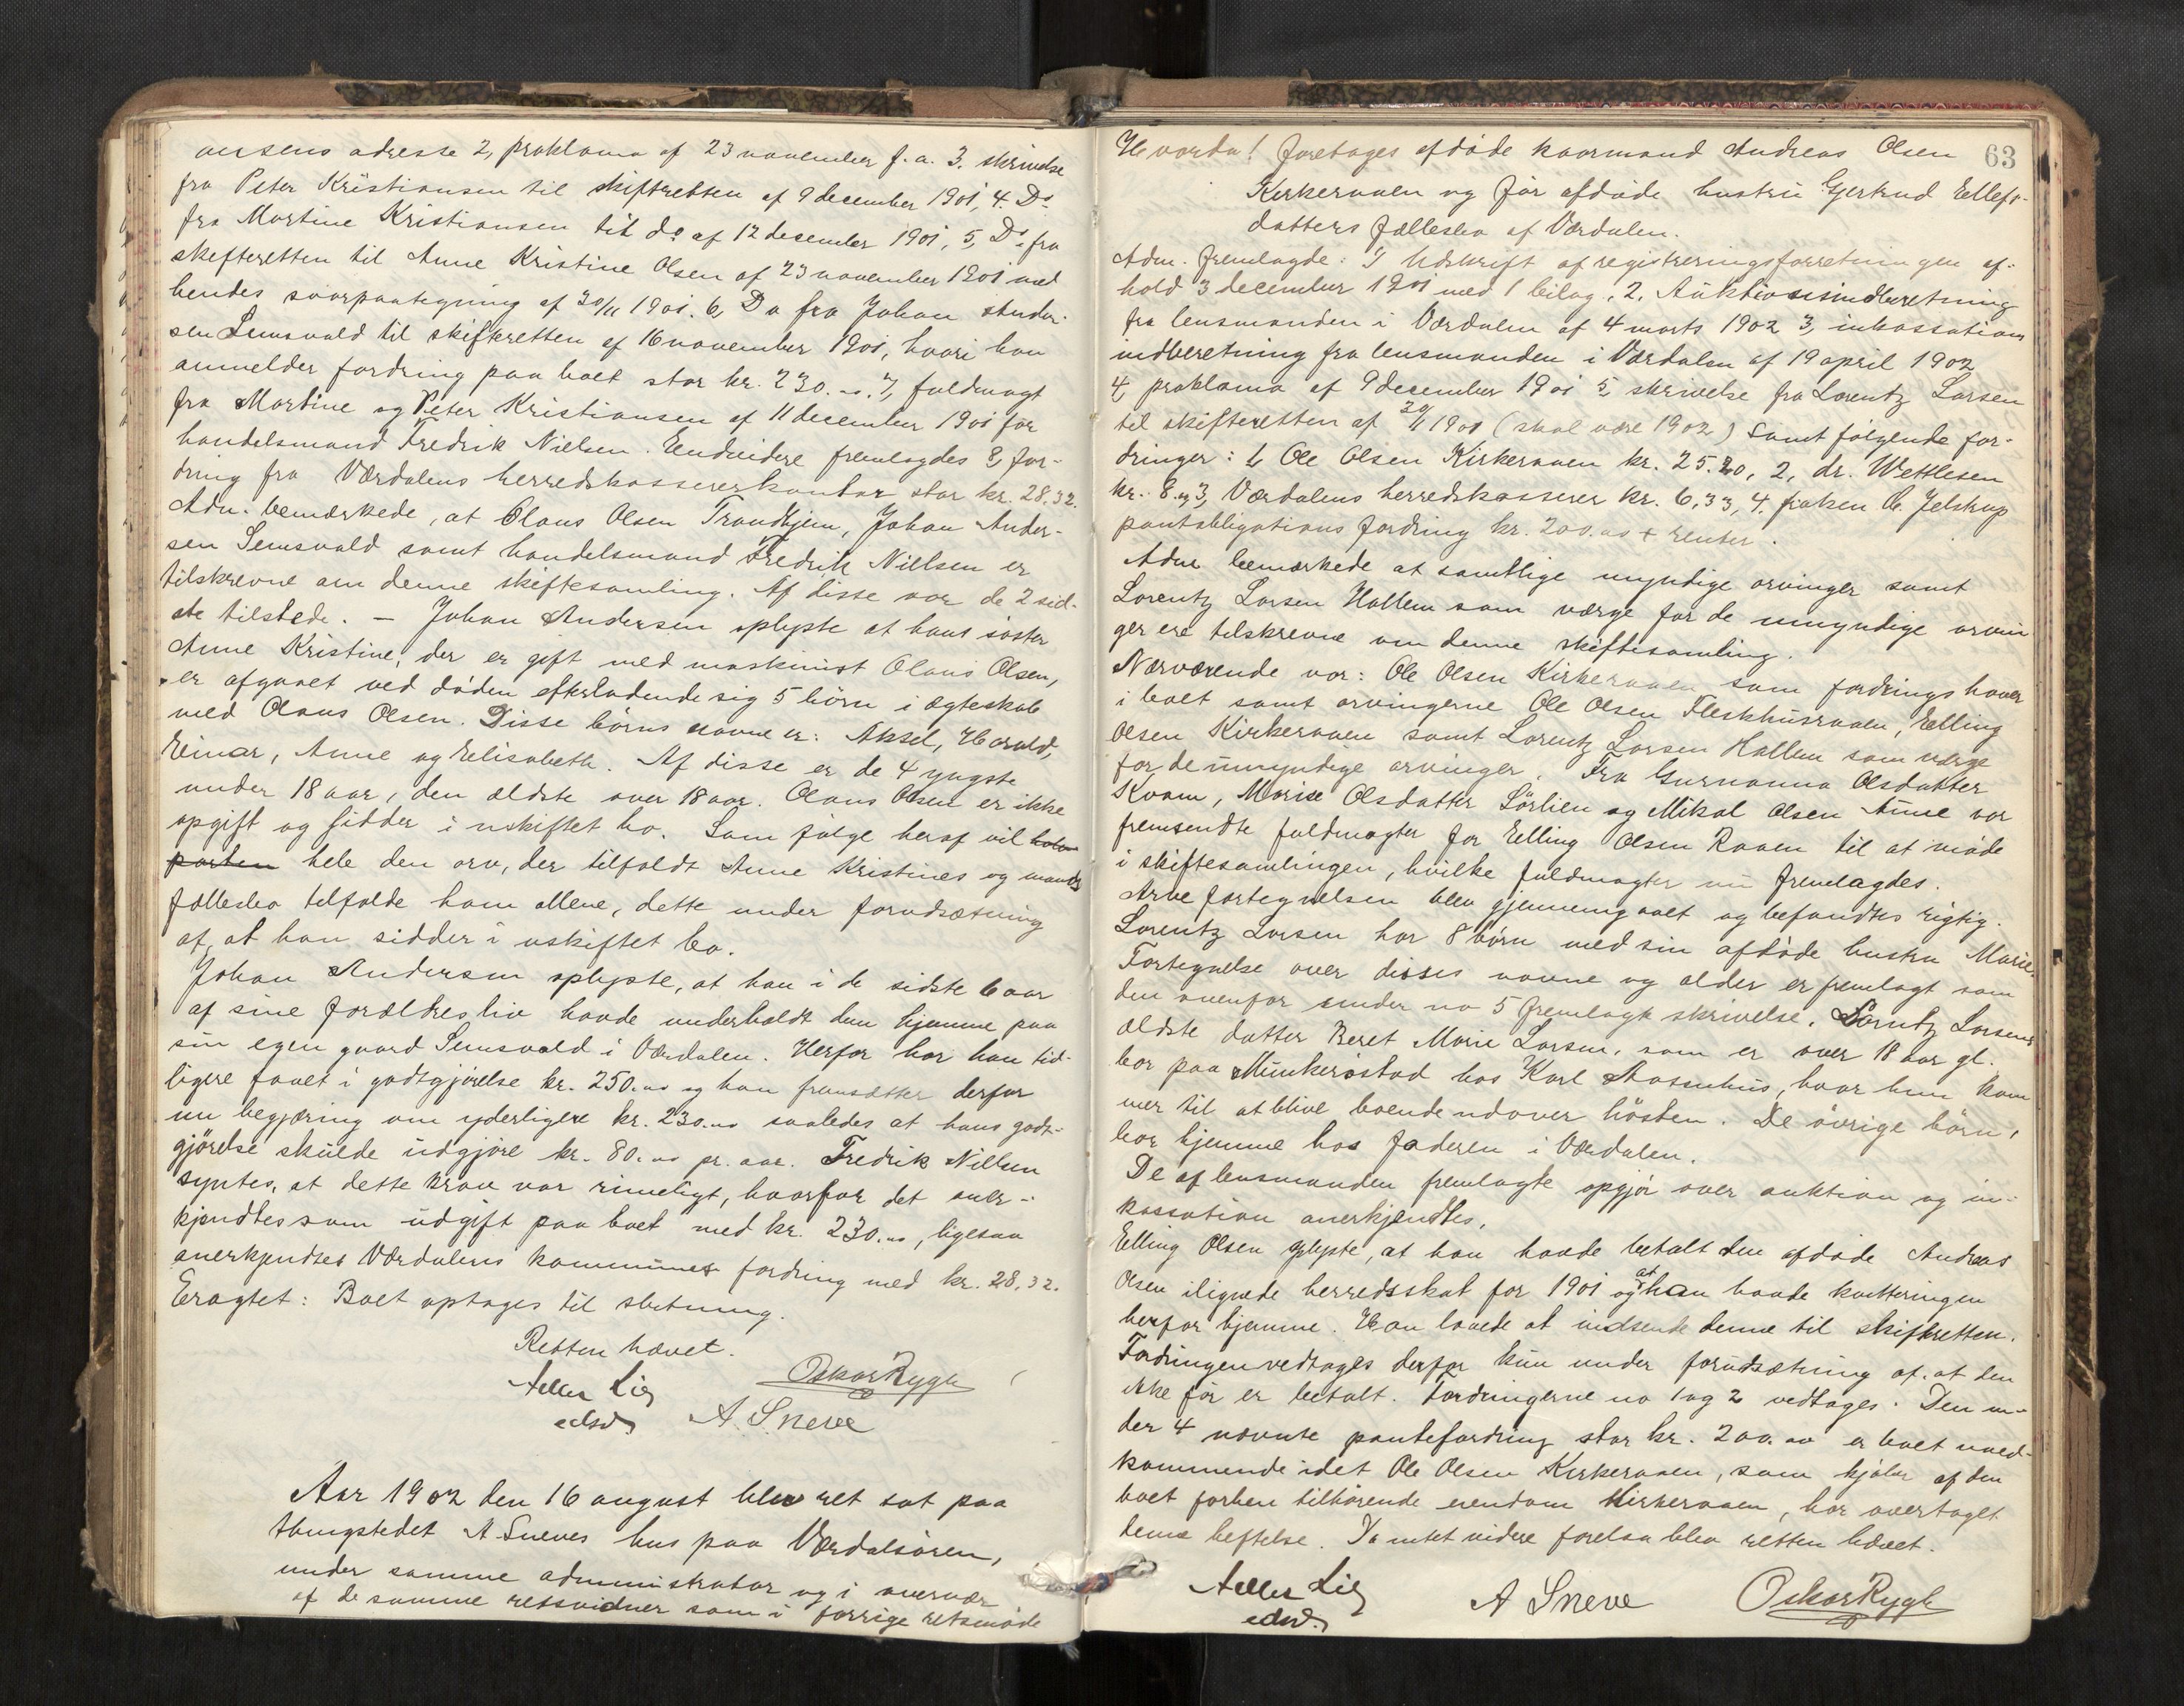 ansens adresse 2, proklama af 23 november f. a. 3. skrivelse
fra Peter Kristiansen til skifteretten af 9 december 1901, 4. Do
fra Martine Kristiansen til do af 12 desember 1901, 5, Do fra
skifteretten til Anne Kristine Olsen af 23 november 1901 med
hendes svarpaategning af 30/11 1901. 6, Do fra Johan Ander-
sen Semsvald til skifteretten af 16 november 1901, hvori han
anmelder fordring paa boet stor kr. 230.00. 7, fuldmagt
fra Martine og Peter Kristiansen af 11 desember 1901 for
handelsmand Fredrik Nielsen. Endvidere fremlagdes 8, for-
dring fra Værdalens herredskassererkontor stor kr. 28.32.
Adm. bemærkede, at Olaus Olsen Trondhjem, Johan Ander-
sen Semsvald samt handelsmand Fredrik Nielsen er
tilskrevne om denne skiftesamling. Af disse var de 2 sid-
ste tilstede. — Johan Andersen oplyste at hans søster
Anne Kristine, der er gift med maskinist Olaus Olsen,
er afgaaet ved døden efterladende sig 5 børn i ægteskab
med Olaus Olsen. Disse børns navne er: Aksel, Harald,
Einar, Anne og Elisabeth. Af disse er de 4 yngste
under 18 aar, den ældste over 18 aar. Olaus Olsen er ikke
opgift og sidder i uskiftet bo. Som følge heraf vil halv
parten hele den arv, der tilfaldt Anne Kristines og mands
fællesbo tilfalde ham allene, dette under forudsætning
af, at han sidder i uskiftet bo.
Johan Andersen oplyste, at han i de sidste 6 aar
af sine forældres liv havde underholdt dem hjemme paa
sin egen gaard Semsvald i Værdalen. Herfor har han tid-
ligere faaet i godtgjørelse kr. 250.00 og han fremsætter derfor
nu begjæring om yderligere kr. 230.00 saaledes at hans godt-
gjørelse skulde udgjøre kr. 80.00 pr. aar. Fredrik Nielsen
syntes, at dette krav var rimeligt, hvorfor det aner-
kjendtes som udgift paa boet med kr. 230.00, ligesaa
anerkjendtes Værdalens kommunes fordring med kr. 28.32.
Eragtet: Boet optages til slutning.
Retten hævet.
Lie
edsv. A. Sneve Oskar Rygh
Aar 1902 den 16 august blev ret sat paa
thingstedet A Sneves hus paa Værdalsøren,
under samme administrator og i overvær
af de samme retsvidner som i forrige retsmøde
63
Hvorda! foretages afdøde kaarmand Andreas Olsen
Kirkeraaen og før afdøde hustru Gjertrud Ellefs-
datters fællesbo af Værdalen.
Adm. fremlagde: 1 Udskrift af registreringsforretningen af-
hold 3 december 1901 med 1 bilag, 2, Auktionsindberetning
fra lensmanden i Værdalen af 4 marts 1902 3, inkassations
indberetning fra lensmanden i Værdalen af 19 april 1902
4, proklama af 9 december 1901 5, skrivelse fra Lorentz Larsen
til skifteretten af 20/1 1901 (skal være 1902) samt følgende for-
dringer: 1, Ole Olsen Kirkeraaen kr. 25.20, 2, dr. Wettlesen
kr. 8.00 3, Værdalens herredskasserer kr. 6.33, 4, frøken C. Jelstrup
pantobligations fordring kr. 200.00 + renter.
Adm. bemærkede at samtlige myndige arvinger samt
Lorentz Larsen Hallem som værge for de umyndige arvin
ger ere tilskrevne om denne skiftesamling.
Nærværende var: Ole Olsen Kirkeraaen som fordringshaver
i boet samt arvingerne Ole Olsen Fleskhusraaen, Elling
Olsen Kirkeraaen samt Lorentz Larsen Hallem som værge
for de umyndige arvinger. Fra Gurnanna Olsdatter
Kvam, Marie Olsdatter Sørlien og Mikal Olsen Aune var
fremsendte fuldmagter for Elling Olsen Raaen til at møde
i skiftesamlingen, hvilke fuldmagter nu fremlagdes.
Arvefortegnelsen blev gjennemgaaet og befandtes rigtig.
Lorentz Larsen har 8 børn med sin afdøde hustru Marie.
Fortegnelse over disses navne og alder er fremlagt som
den ovenfor under no 5 fremlagte skrivelse. Lorentz Larsens
ældste datter Beret Marie Larsen, som er over 18 aar gl.
bor paa Munkerøstad hos Karl Aasenhus, hvor hun kom
mer til at blive boende udover høsten. De øvrige børn,
bor hjemme hos faderen i Værdalen.
De af lensmanden fremlagte opgjør over auktion og in-
kassation anerkjendtes.
Elling Olsen oplyste, at han havde betalt den afdøde Andreas
Olsen ilignede herredsskat for 1901 og at han havde kvitteringen
herfor hjemme. Han lovede at indsende denne til skifteretten.
Fordringen vedtages derfor kun under forudsætning af at den
ikke før er betalt. Fordringerne no 1 og 2 vedtages. Den un-
der 4 nævnte pantefordring stor kr. 200.00 er boet uved-
kommende idet Ole Olsen Kirkeraaen, som kjøber af den
boet forhen tilhørende eiendom Kirkeraaen, har overtaget
denne heftelse. Da intet videre forelaa blev retten hævet.
Lie
edsv. A Sneve Oskar Rygh